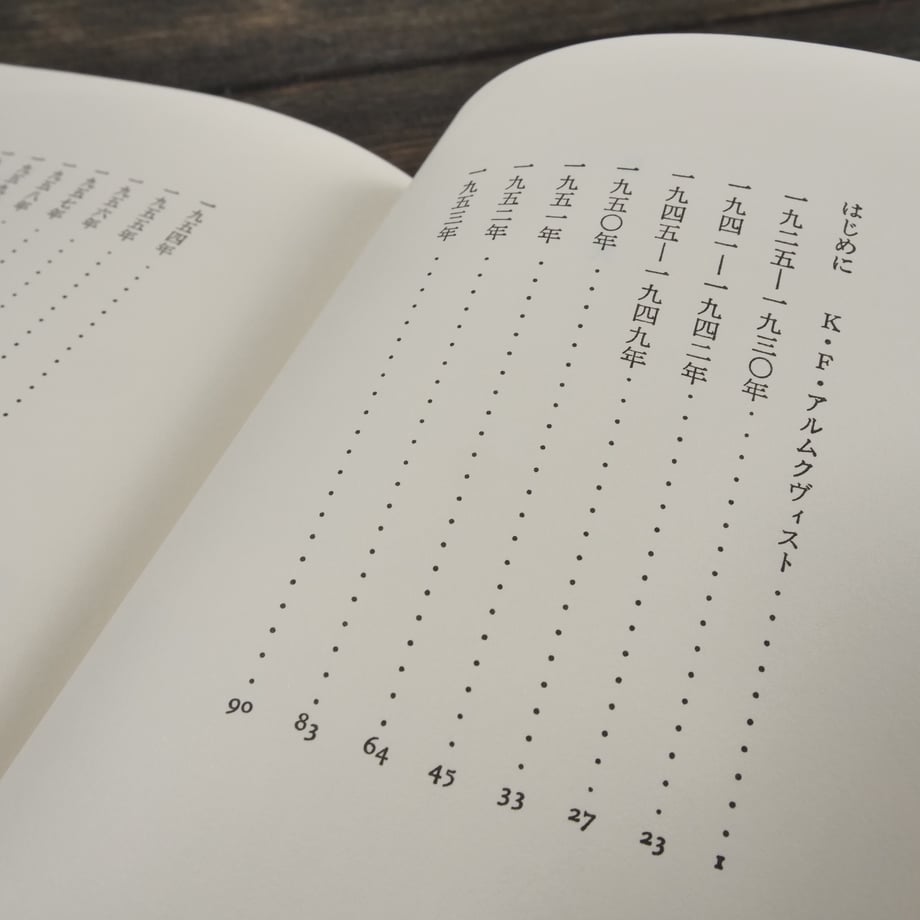 はじめに　K・F・アルムクヴィスト・・・・・・・・・・・1
一九二五―一九三〇年・・・・・・・・・・・・・・・・23
一九四一―一九四二年・・・・・・・・・・・・・・・・27
一九四五―一九四九年・・・・・・・・・・・・・・・・33
一九五〇年・・・・・・・・・・・・・・・・・・・・45
一九五一年・・・・・・・・・・・・・・・・・・・・64
一九五二年・・・・・・・・・・・・・・・・・・・・83
一九五三年・・・・・・・・・・・・・・・・・・・・90
一九五四年・・・・・・・・
一九五五年・・・・・・・・
一九五六年・・・・・・
一九五七年・・・・・
一九五八年・・・